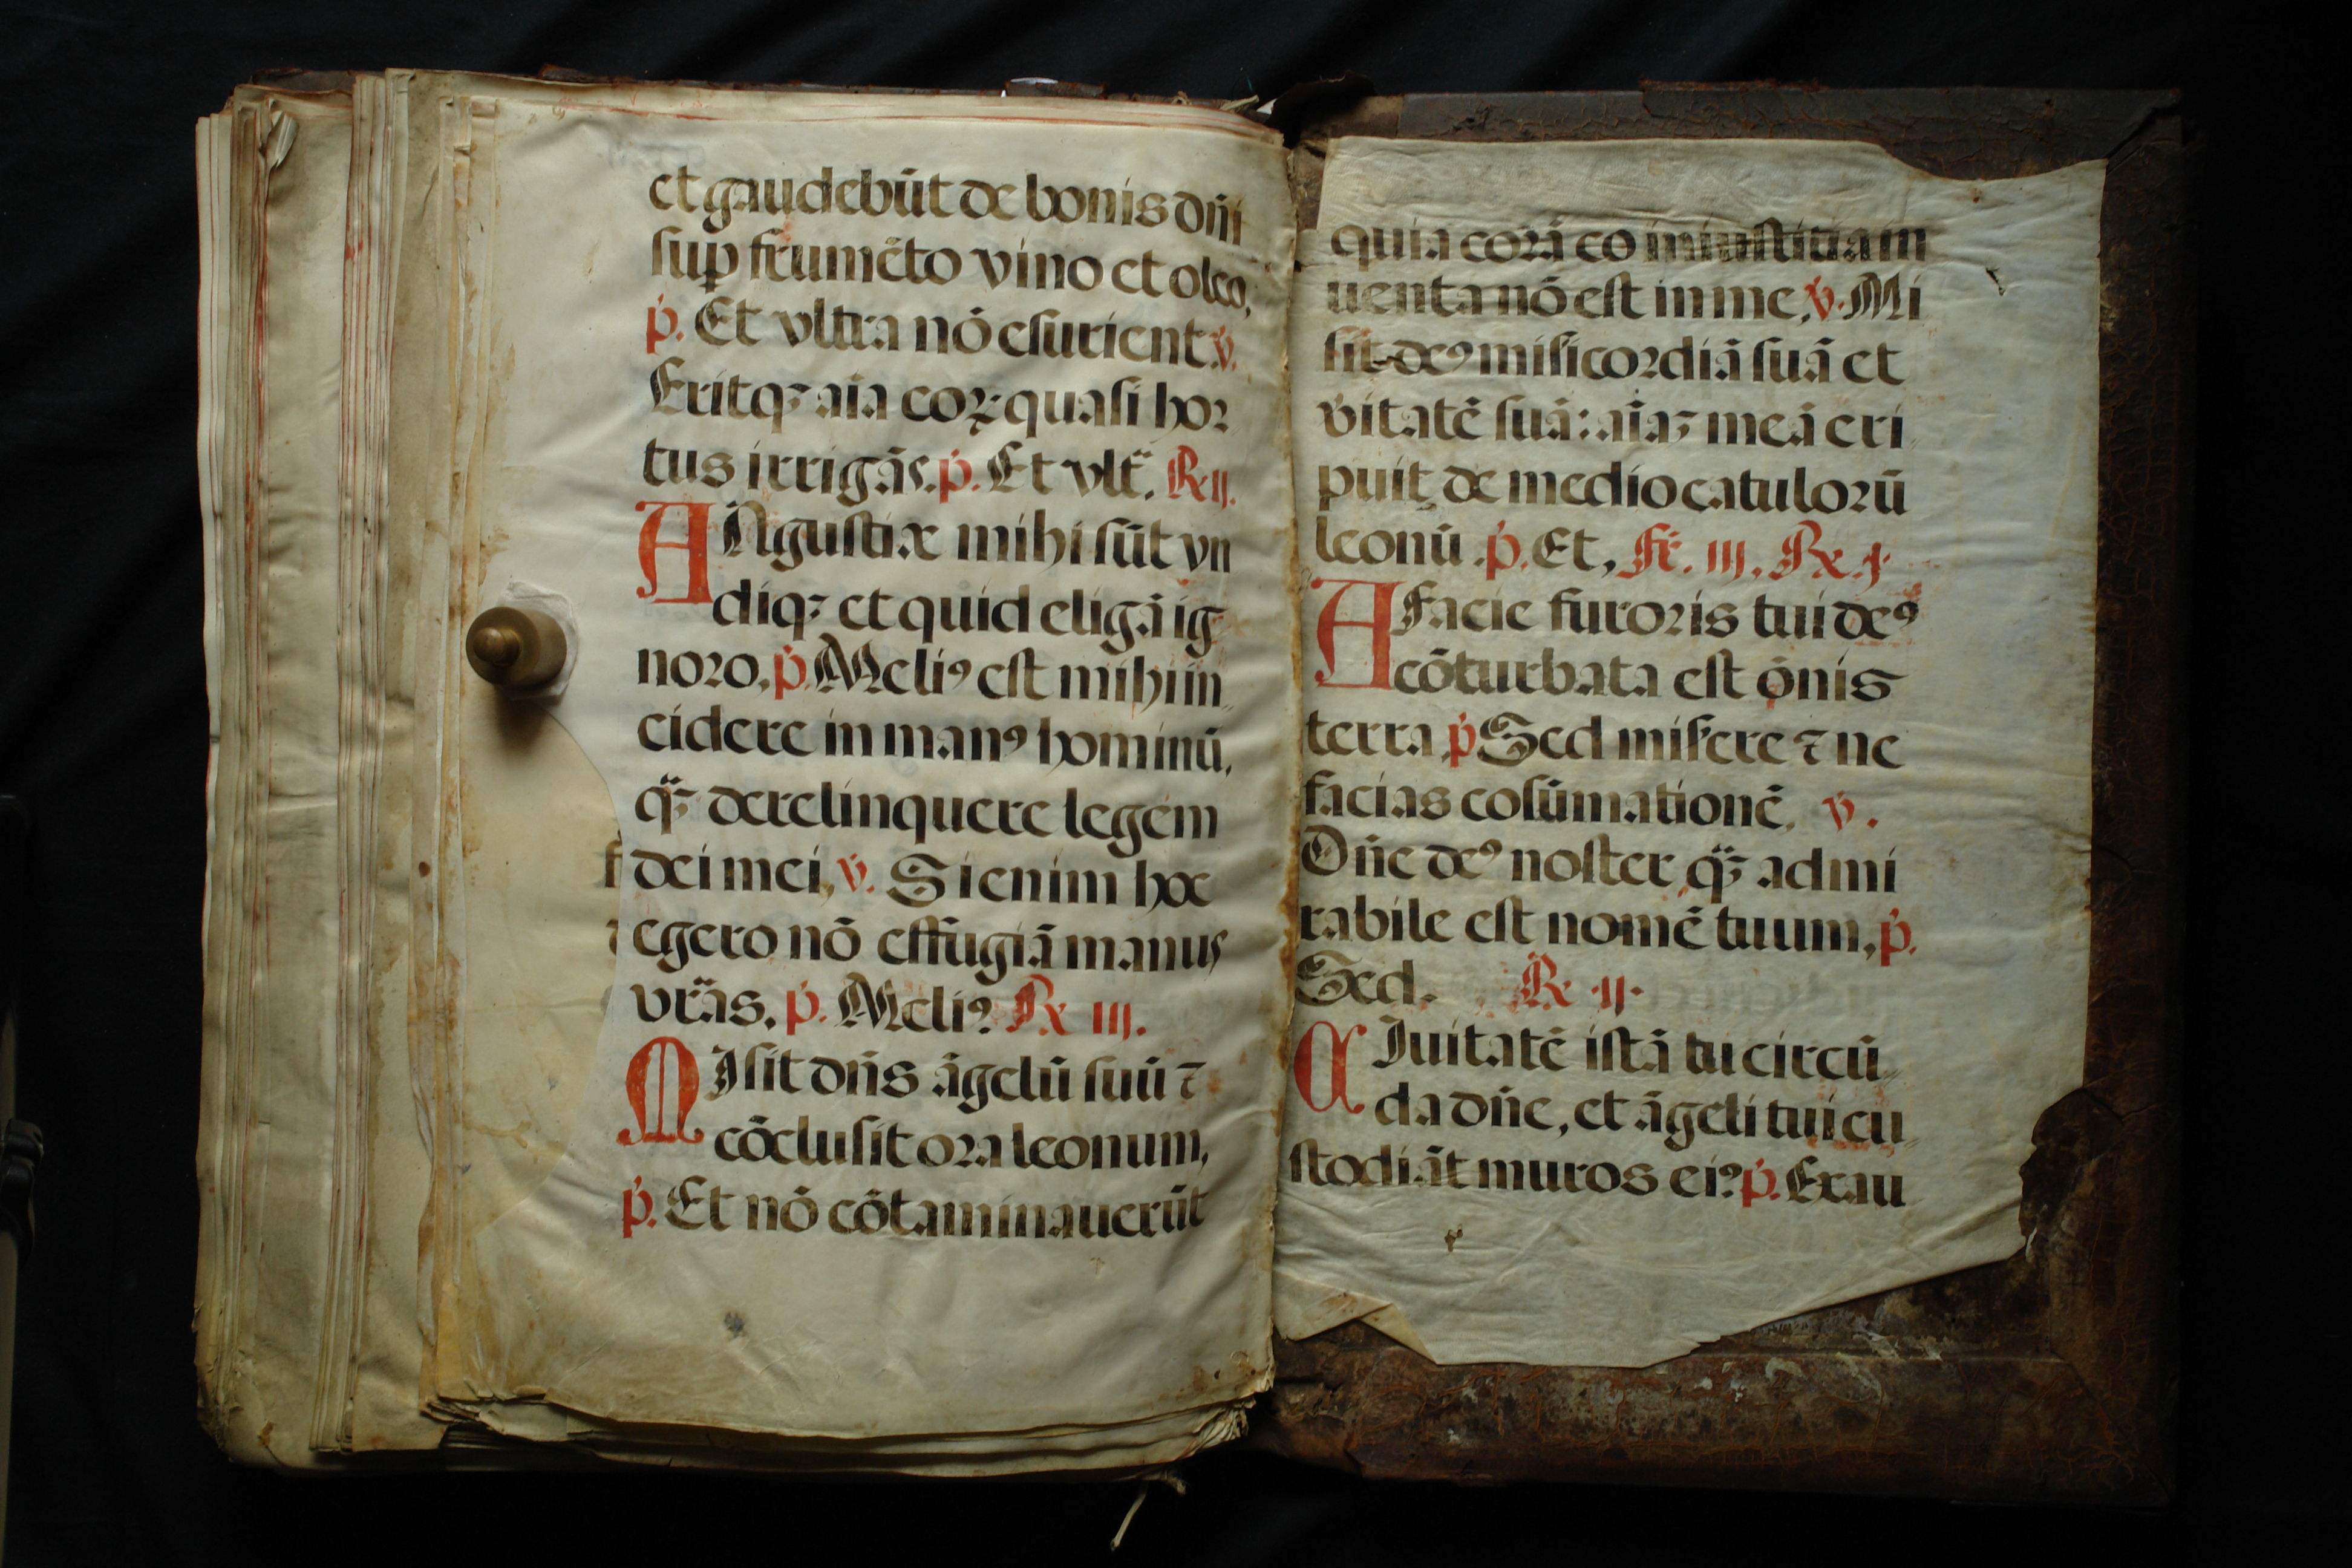 et gaudebūt de bonis dn̄i
sup frumēto vino et oleo,
p̄. Et vltra nō esurient v̄.
Eritqꝫ aīa coꝝ quasi hor
tus irrigūs. p̄. Et vlt̄. R. ij.
ANgustiæ mihi sūt vn
diqꝫ et quid eligā ig
noro, p̄. Meliꝰ est mihi in
cidere in manꝰ hominū,
q̄ꝫ derelinquere legem
dei mei, v̄. Si enim hoc
egero nō effugiā manus
vrās. p̄. Meliꝰ R iij.
MIsit dn̄s āgelū suū ⁊
cōclusit ora leonum,
p̄. Et nō cōtaminauerūt
quia corā eo iniustitia in
uenta nō est in me, v̄. Mi
sit deꝰ misicordiā suā et
v̄itatē suā: aīaꝫ meā eri
puit de medio catulorū
leonū. p̄. Et, Fē. iij. R. j.
A Facie furoris tui deꝰ
cōturbata est ōnis
terra p̄ Sed misere ⁊ ne
facias cōsūmationē, v̄.
Dn̄e deꝰ noster q̄ꝫ admi
rabile est nomē tuum, p̄.
Sed. R. ij.
CIuitatē istā tu circū
da dn̄e, et āgeli tui cu
stodiāt muros eiꝰ p̄. Exau